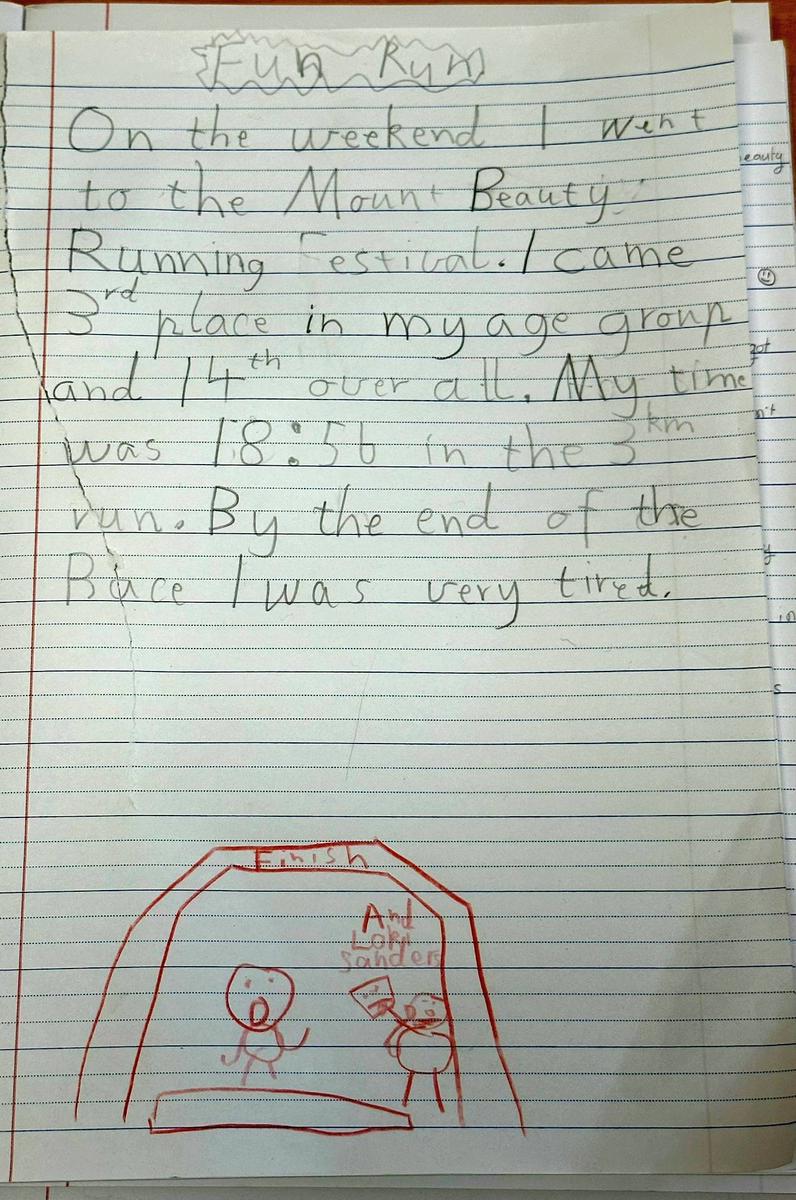 Fun Run
On the weekend I went
to the Mount Beauty
Running Festival. I came
3rd place in my age group
and 14th over all. My time
was 18:56 in the 3km
run. By the end of the
Race I was very tired.
Finish
And
Loki
Sanders
eauty
got
n't
y
in
s